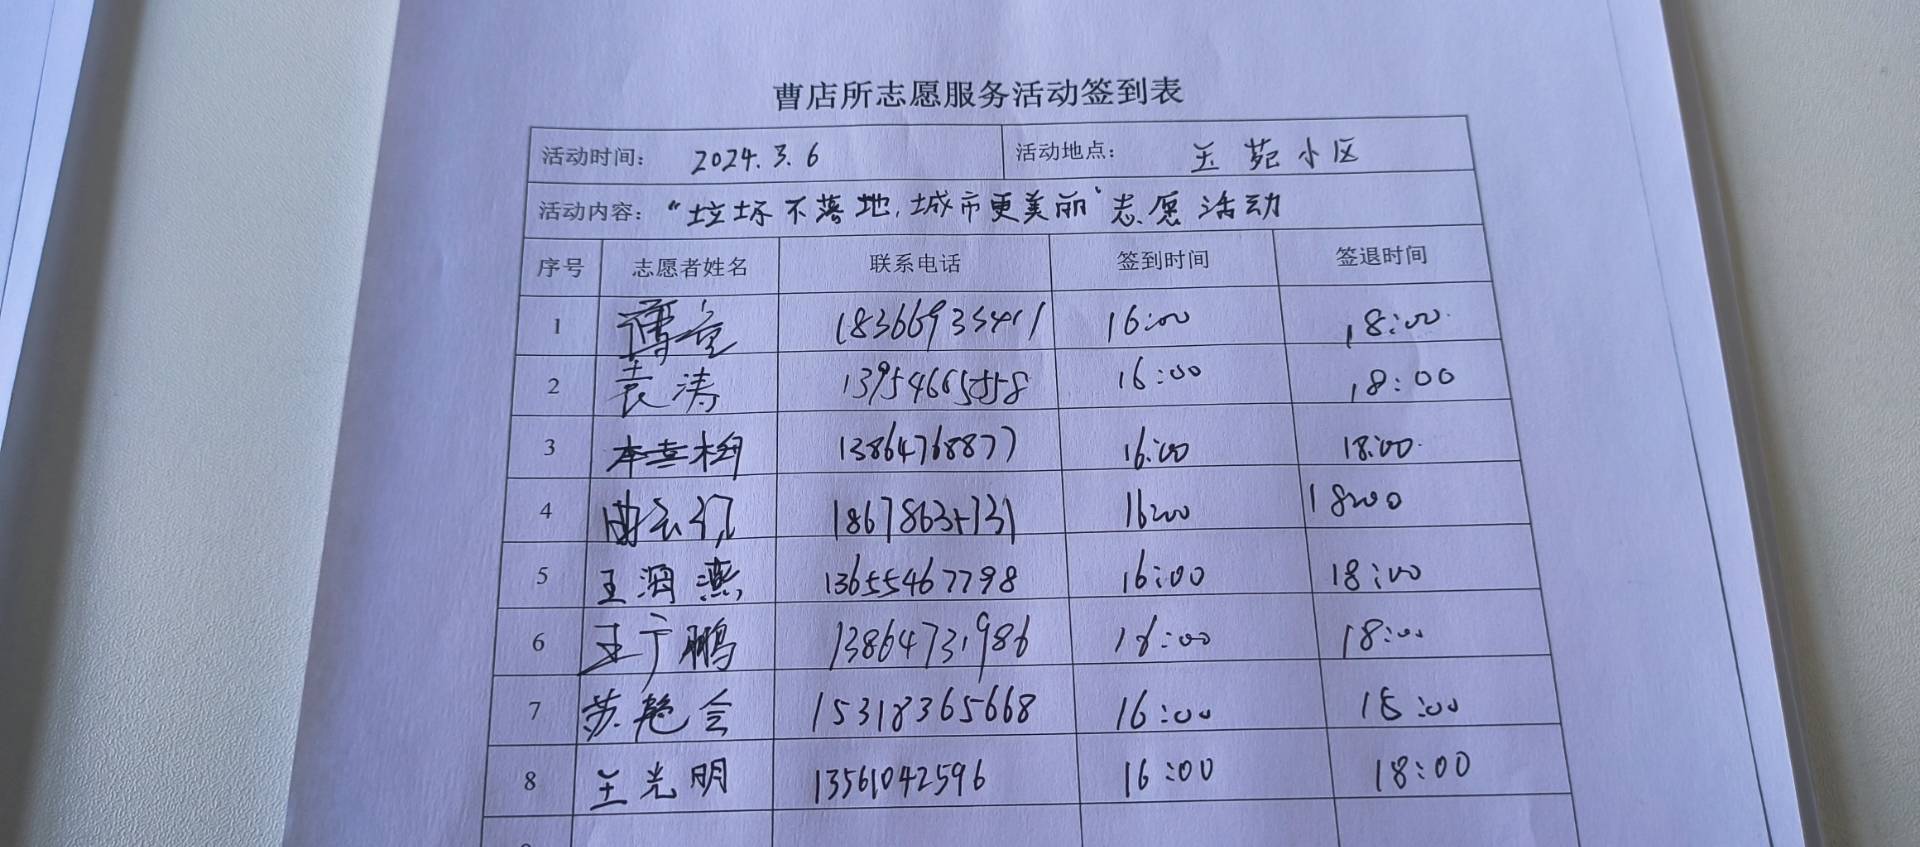 曹店所志愿服务活动签到表
活动时间: 2024.3.6 活动地点: 玉苑小区
活动内容: “垃圾不落地,城市更美丽”志愿活动
序号 志愿者姓名 联系电话 签到时间 签退时间
1 16:00 18:00
2 袁涛 16:00 18:00
3 13864768877 16:00 18:00
4 16:00 18:00
5 王海燕 13655467798 16:00 18:00
6 王广鹏 13864731986 16:00 18:00
7 苏艳会 15318365668 16:00 18:00
8 王光明 13561042596 16:00 18:00